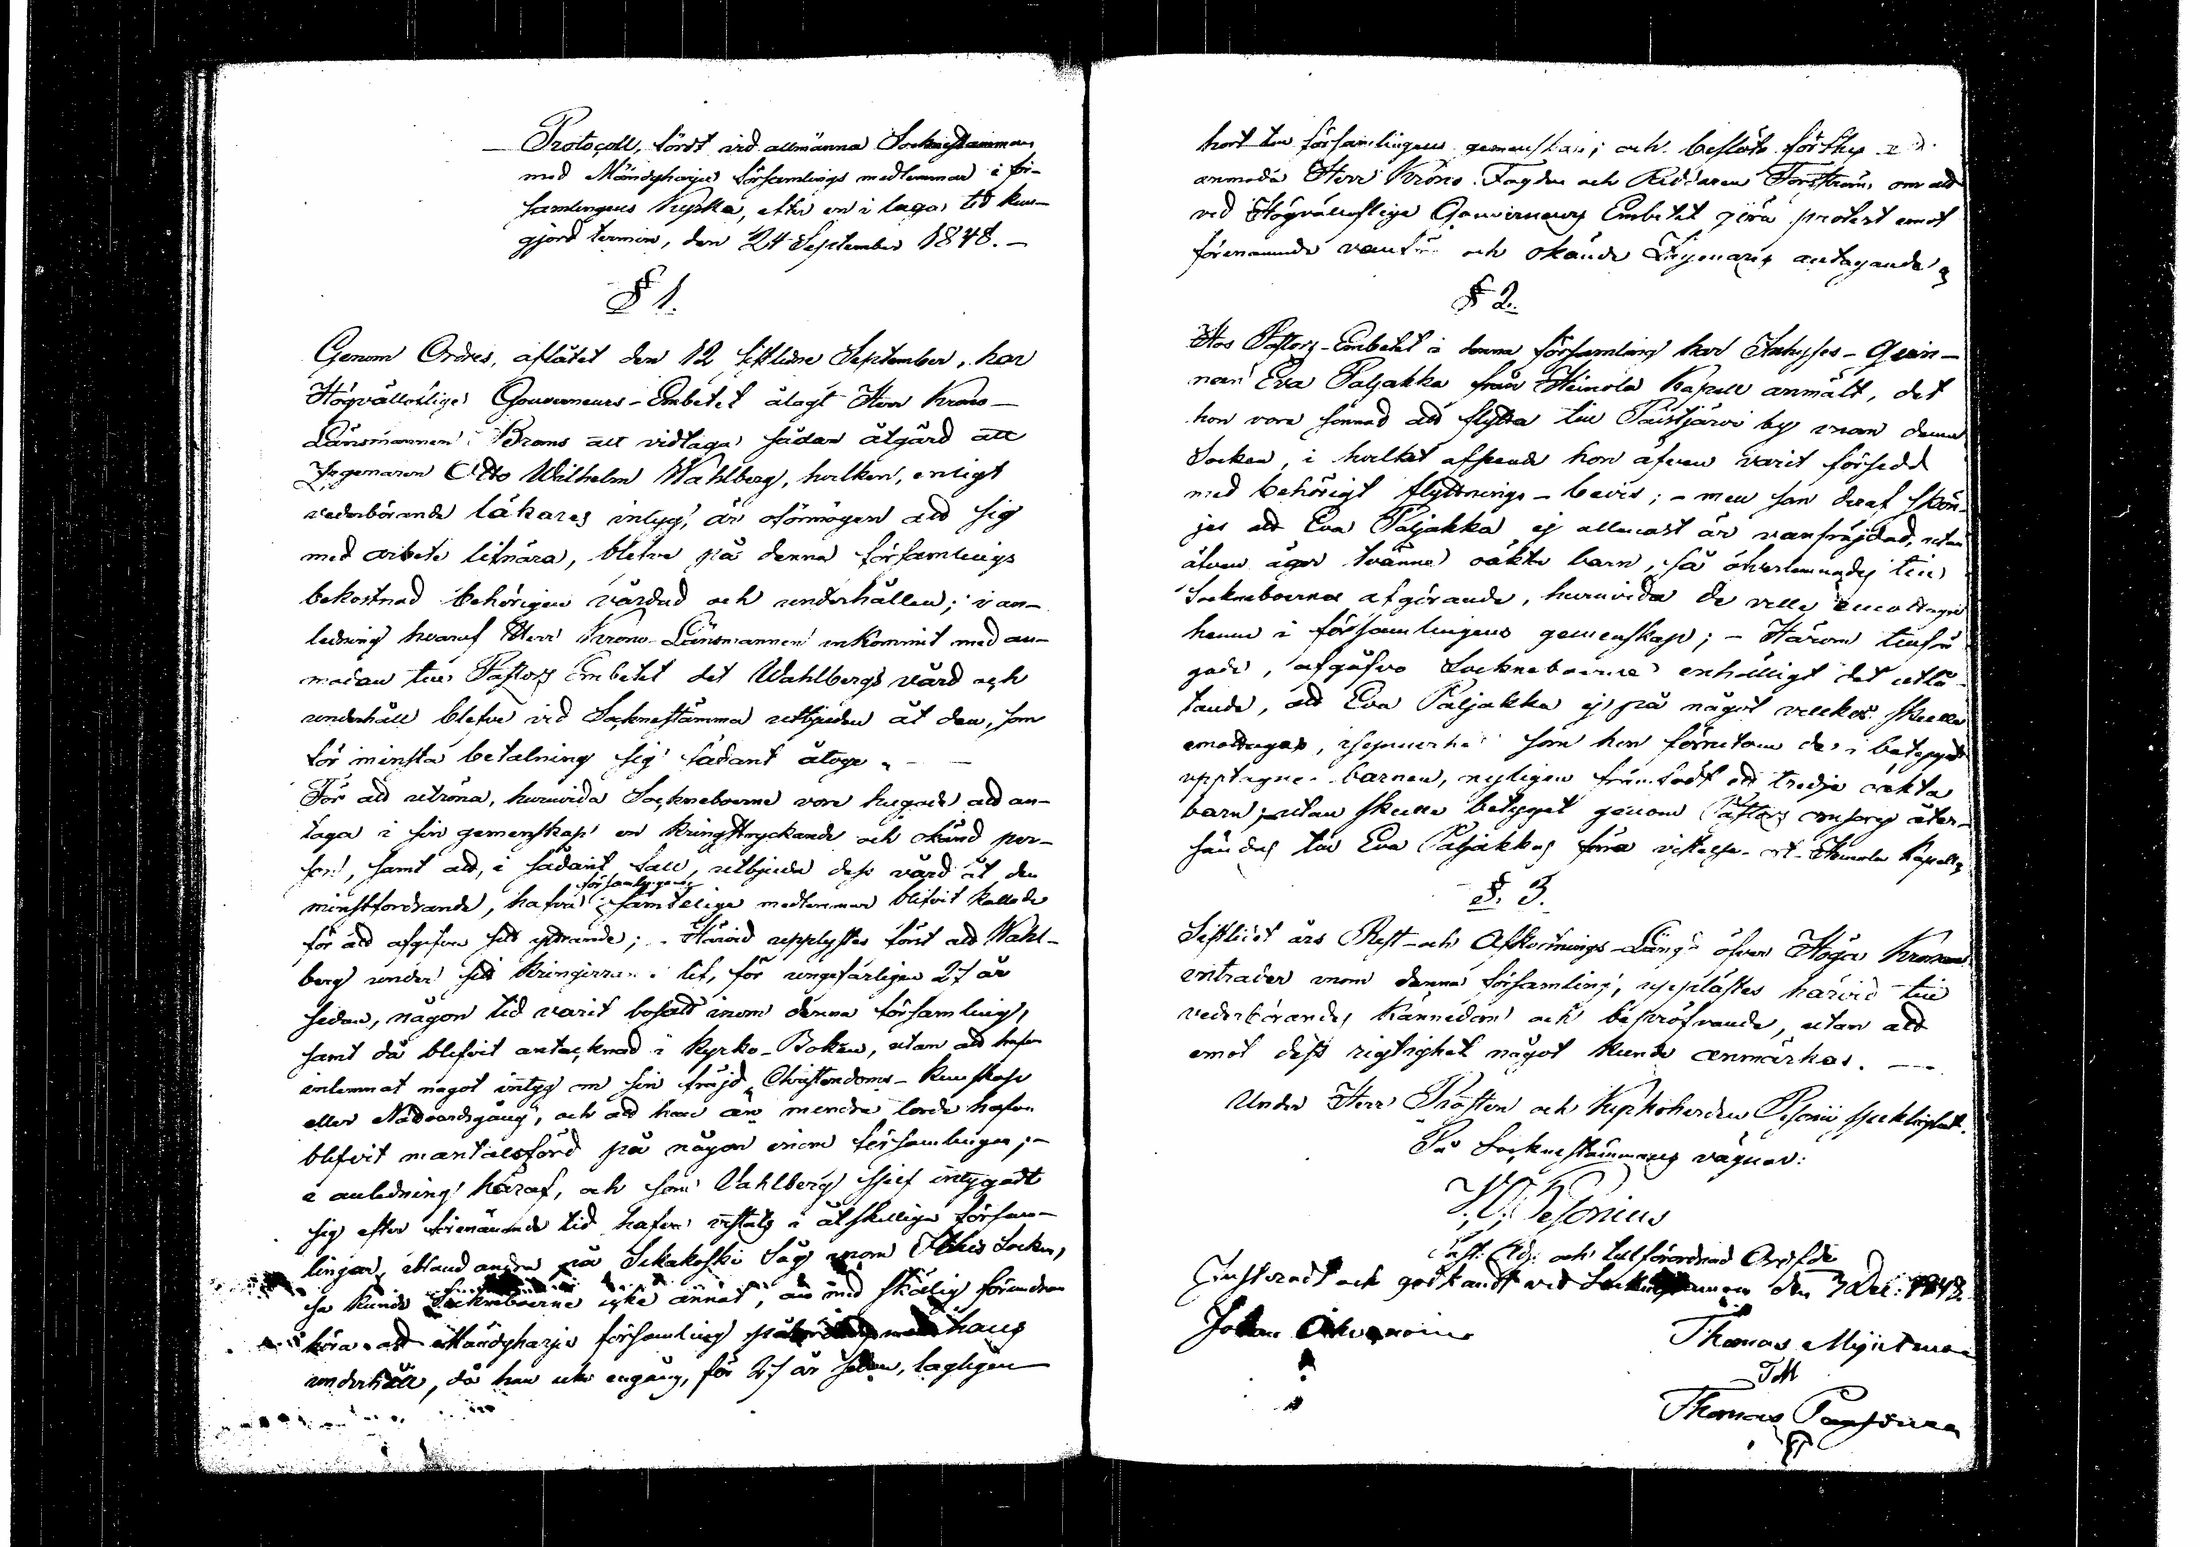 Protocoll, fördt vid allmänna Sockenstämman
med Mändyharju församlings medlemmar i för-
samlingens Kyrka, efter en i laga tid kun-
gjord termin, den 24 September 1848. -
§ 1.
Genom Ordres, aflåtet den 12 sistledne September, har
Högvällofliga Gouverneurs-Embetet ålagt Herr Krono-
Länsmannen Brams att vidtaga sådan åtgärd att
Zigenaren Otto Wilhelm Wahlberg, hvilken, enligt
vederbörande läkares intyg, är oförmögen att sig
med arbete lifnära, blefve på denna församlings
bekostnad behörigen vårdad och underhållen; i an-
ledning hvaraf Herr Krono-Länsmannen inkommit med an-
modan till Pastors Embetet det Wahlbergs vård och
underhåll blefve vid Sockenstämma utbjuden åt den, som
för minsta betalning sig sådant åtoge. -
För att utröna, huruvida Sockneboerne vore hugade att an-
taga i sin gemenskap en kringstrykande och okänd per-
son, samt att, i sådant fall, utbjuda dess vård åt den
minstfordrande, hafva församlingens samtelige medlemmar blifvit kallade
för att afgifva sitt yttrande; - Härvid upplystes först att Wahl-
berg under sitt kringirrande lif, för ungefärligen 27 år
sedan, någon tid varit bosatt inom denna församling,
samt då blifvit antecknad i Kyrko-Boken, utan att hafva
inlemnat något intyg om sin fräjd, Christendoms-kunskap
eller Nådvardsgång, och att han än mendre torde hafva
blifvit mantalsförd på någon inom församlingen; -
i anledning häraf, och som Wahlberg sjelf intygadt
sig efter förenämnde tid hafva vistats i åtskilliga försam-
lingar, ibland andra på Sukakoski Såg inom Ithis Socken,
så kunde Sockneboerne icke annat, än med skälig förundran
höra att Mändyharju församling hans
underhåll, då han icke engång, för 27 år sedan, lagligen
hört till församlingens gemenskap; och beslöts förthy att
anmoda Herr Krono-Fogden och Riddaren Forsström, om att
vid Högvällofliga Gouverneurs Embetet göra protest emot
förenämnde och okände Zigenares antagande.
§ 2.
Hos Pastors-Embetet i denna församling har Inhyses-Quin-
nan Eva Paljakka från Heinola Kapell anmält, det
hon vore sinnad att flytta till Paistjärvi by inom denna
Socken, i hvilket afseende hon äfven varit försedd
med behörigt flyttnings-bevis; - men som deraf skön-
jes att Eva Paljakka ej allenast är vanfräjdad, utan
äfven äger tvänne oäkta barn, så öfverlemnades till
Sockneboerne afgörande, huruvida de ville emottaga
henne i församlingens gemenskap; - Härom tillfrå-
gade, afgåfvo Sockneboerne enhälligt det utlå-
tande, att Eva Paljakka ej på något villkor skulle
emottagas, isynnerhet som hon förutom de i betyget
upptagne barnen, nyligen framfödt ett tredje oäkta
barn; utan skulle betyget genom Pastors omsorg åter-
sändas till Eva Paljakkas förra vistelse-ort Heinola Kapell.
§. 3.
Sistlidet års Rest- och Afkortnings-Längd öfver Höga Kronans
intrader inom denna församling, upplästes härvid till
vederbörandes kännedom och bepröfvande, utan att
emot dess rigtighet något kunde anmärkas. -
Under Herr Prosten och Kyrkoherden Pesonii sjuklighet.
På Sockenstämmans vägnar:
Pesonius
Past. Adj. och tillförordnad Ordf:de
Justeradt och godkändt vid Sockenstämman den 3 Dec: 1848.
Johan
Thomas
Thomas